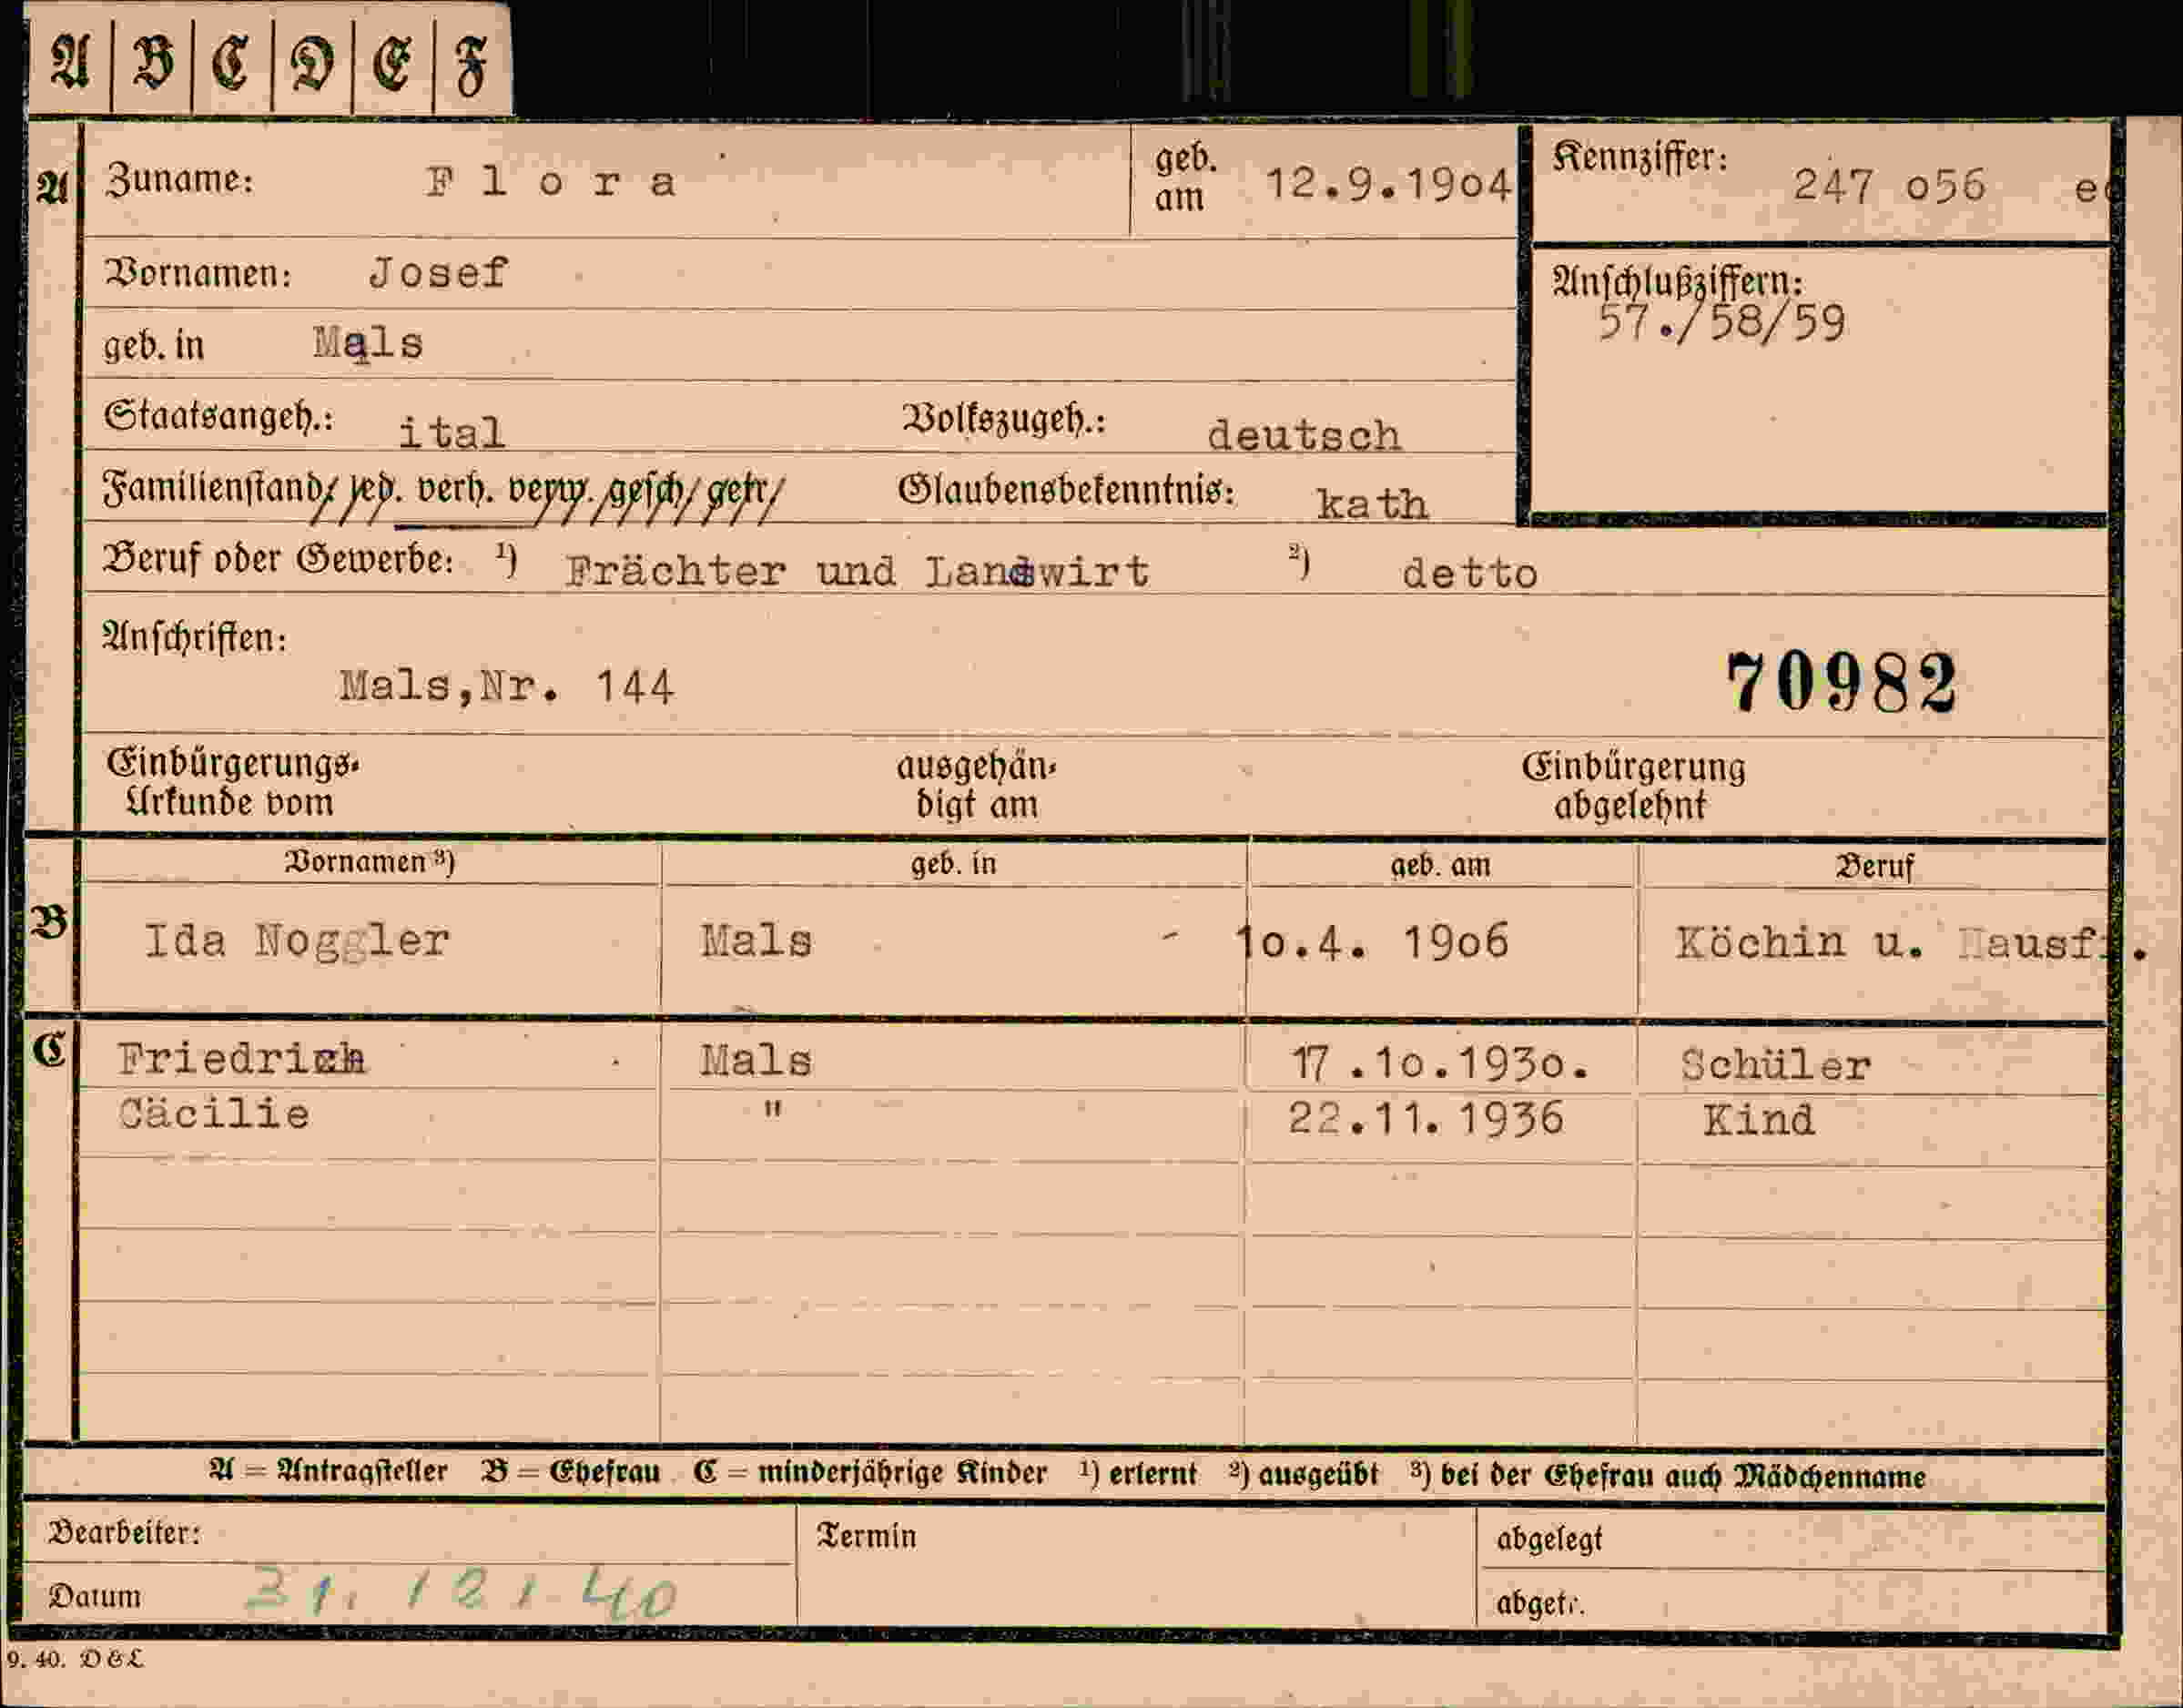 A B C D E F
A Zuname: Flora geb. am 12.9.19o4 Kennziffer: 247 o56
Vornamen: Josef Anschlußziffern: 57./58/59
geb. in Mals
Staatsangeh.: ital Volkszugeh.: deutsch
Familienstand/ led. verh. verw. gesch/ getr/ Glaubensbekenntnis: kath
Beruf oder Gewerbe: ¹) Frächter und Landwirt ²) detto
Anschriften:
Mals,Nr. 144 70982
Einbürgerungs- ausgehän- Einbürgerung
Urkunde vom digt am abgelehnt
Vornamen ³) geb. in geb. am Beruf
B Ida Noggler Mals - 1o.4. 19o6 Köchin u. Hausfr.
C Friedrich Mals 17.1o.193o. Schüler
Cäcilie " 22.11.1936 Kind
A = Antragsteller B = Ehefrau C = minderjährige Kinder ¹) erlernt ²) ausgeübt ³) bei der Ehefrau auch Mädchenname
Bearbeiter: Termin abgelegt
Datum 31. 12. 40 abgetr.
9. 40. D & L